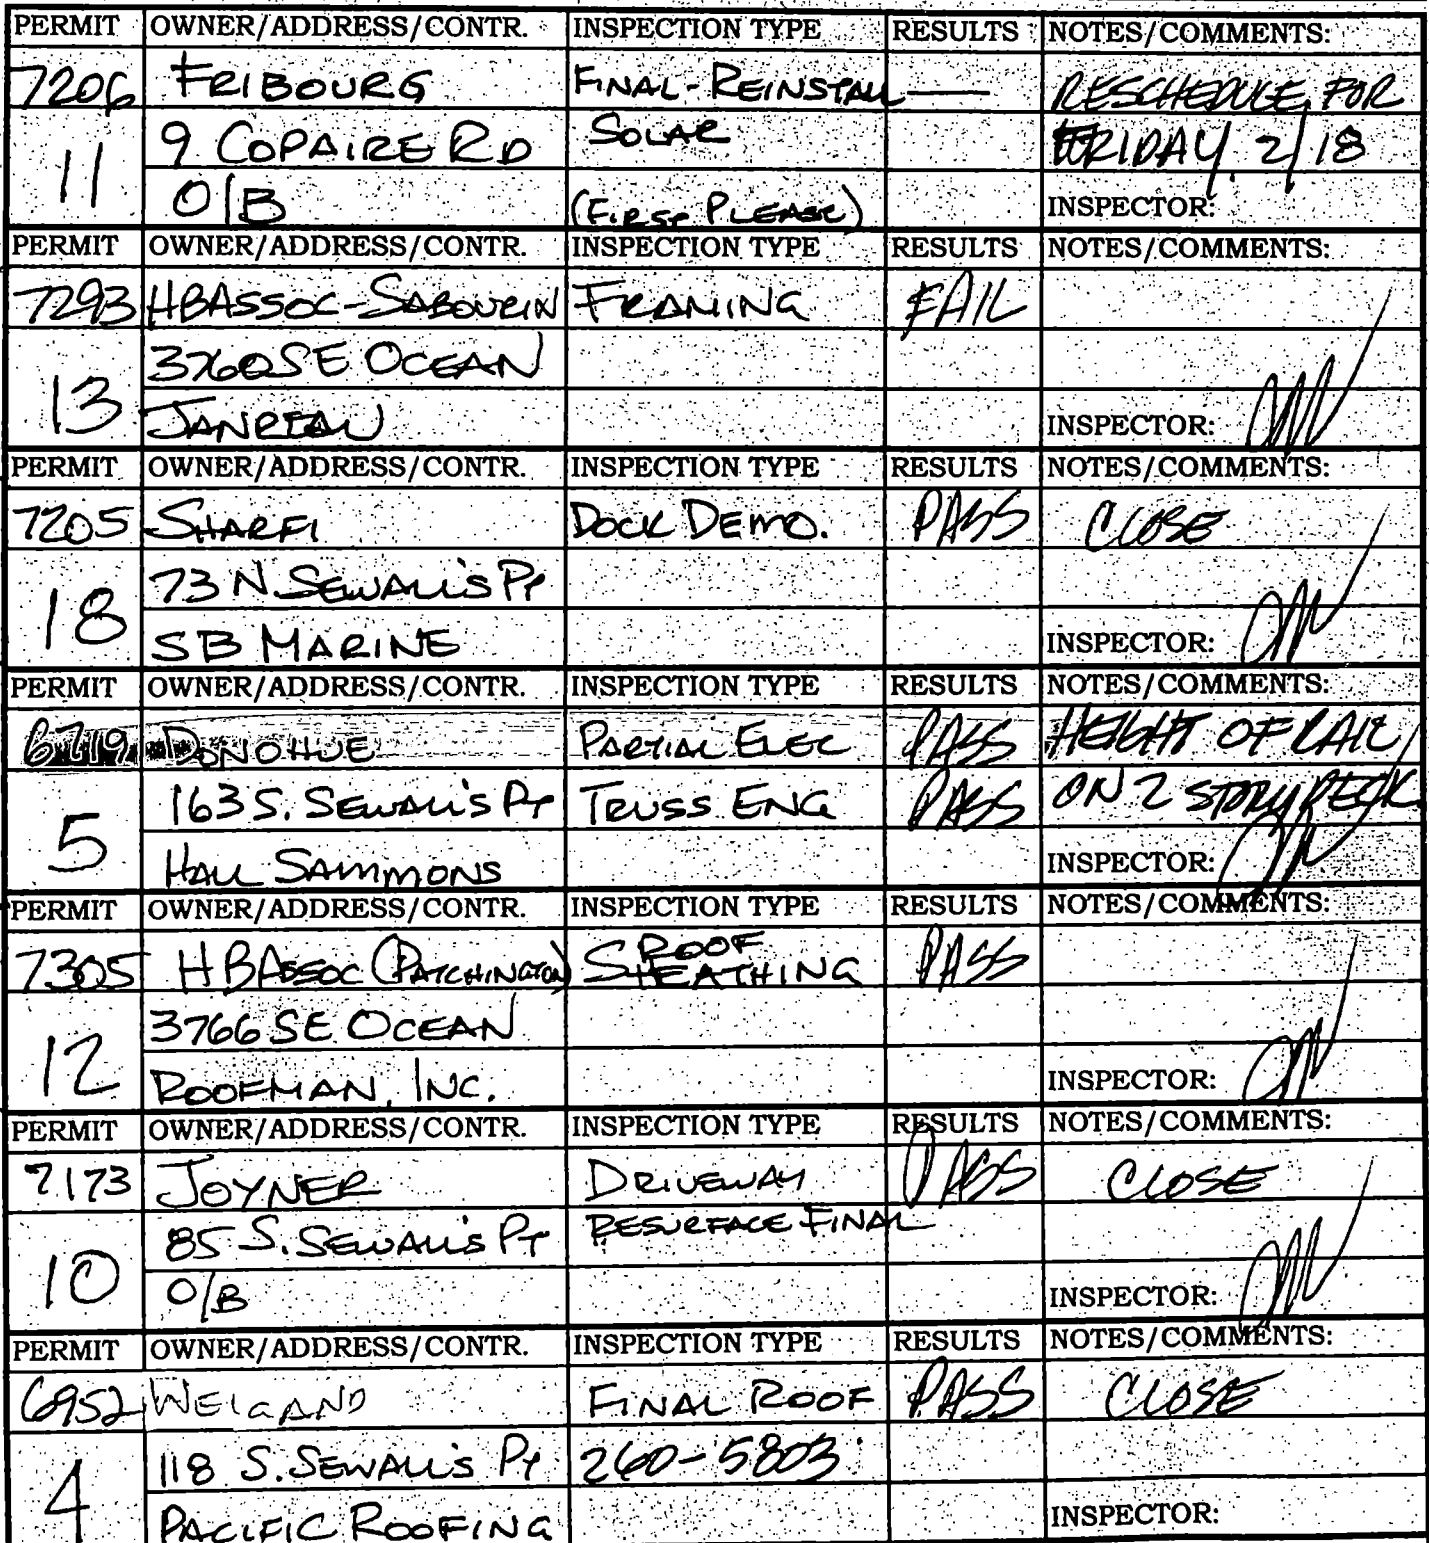 PERMIT OWNER/ADDRESS/CONTR. INSPECTION TYPE RESULTS NOTES/COMMENTS:
7206 FRIBOURG FINAL-REINSTALL — RESCHEDULE FOR
11 9 COPAIRE RD SOLAR FRIDAY 2/18
O/B (FIRST PLEASE) INSPECTOR:
PERMIT OWNER/ADDRESS/CONTR. INSPECTION TYPE RESULTS NOTES/COMMENTS:
7293 HBASSOC-SABOURIN FRAMING FAIL
13 3760 SE OCEAN
JANREAU INSPECTOR:
PERMIT OWNER/ADDRESS/CONTR. INSPECTION TYPE RESULTS NOTES/COMMENTS:
7205 SHARFI DOCK DEMO. PASS CLOSE
18 73 N. SEWALL'S PT
SB MARINE INSPECTOR:
PERMIT OWNER/ADDRESS/CONTR. INSPECTION TYPE RESULTS NOTES/COMMENTS:
6719 DONOHUE PARTIAL ELEC PASS HEIGHT OF RAIL
5 163 S. SEWALL'S PT TRUSS ENG PASS ON 2 STORY DECK
HALL SAMMONS INSPECTOR:
PERMIT OWNER/ADDRESS/CONTR. INSPECTION TYPE RESULTS NOTES/COMMENTS:
7305 HBASSOC (PATCHINGTON) ROOF SHEATHING PASS
12 3766 SE OCEAN
ROOFMAN, INC. INSPECTOR:
PERMIT OWNER/ADDRESS/CONTR. INSPECTION TYPE RESULTS NOTES/COMMENTS:
7173 JOYNER DRIVEWAY PASS CLOSE
10 85 S. SEWALL'S PT RESURFACE FINAL
O/B INSPECTOR:
PERMIT OWNER/ADDRESS/CONTR. INSPECTION TYPE RESULTS NOTES/COMMENTS:
6952 WEIGAND FINAL ROOF PASS CLOSE
4 118 S. SEWALL'S PT 260-5803
PACIFIC ROOFING INSPECTOR: